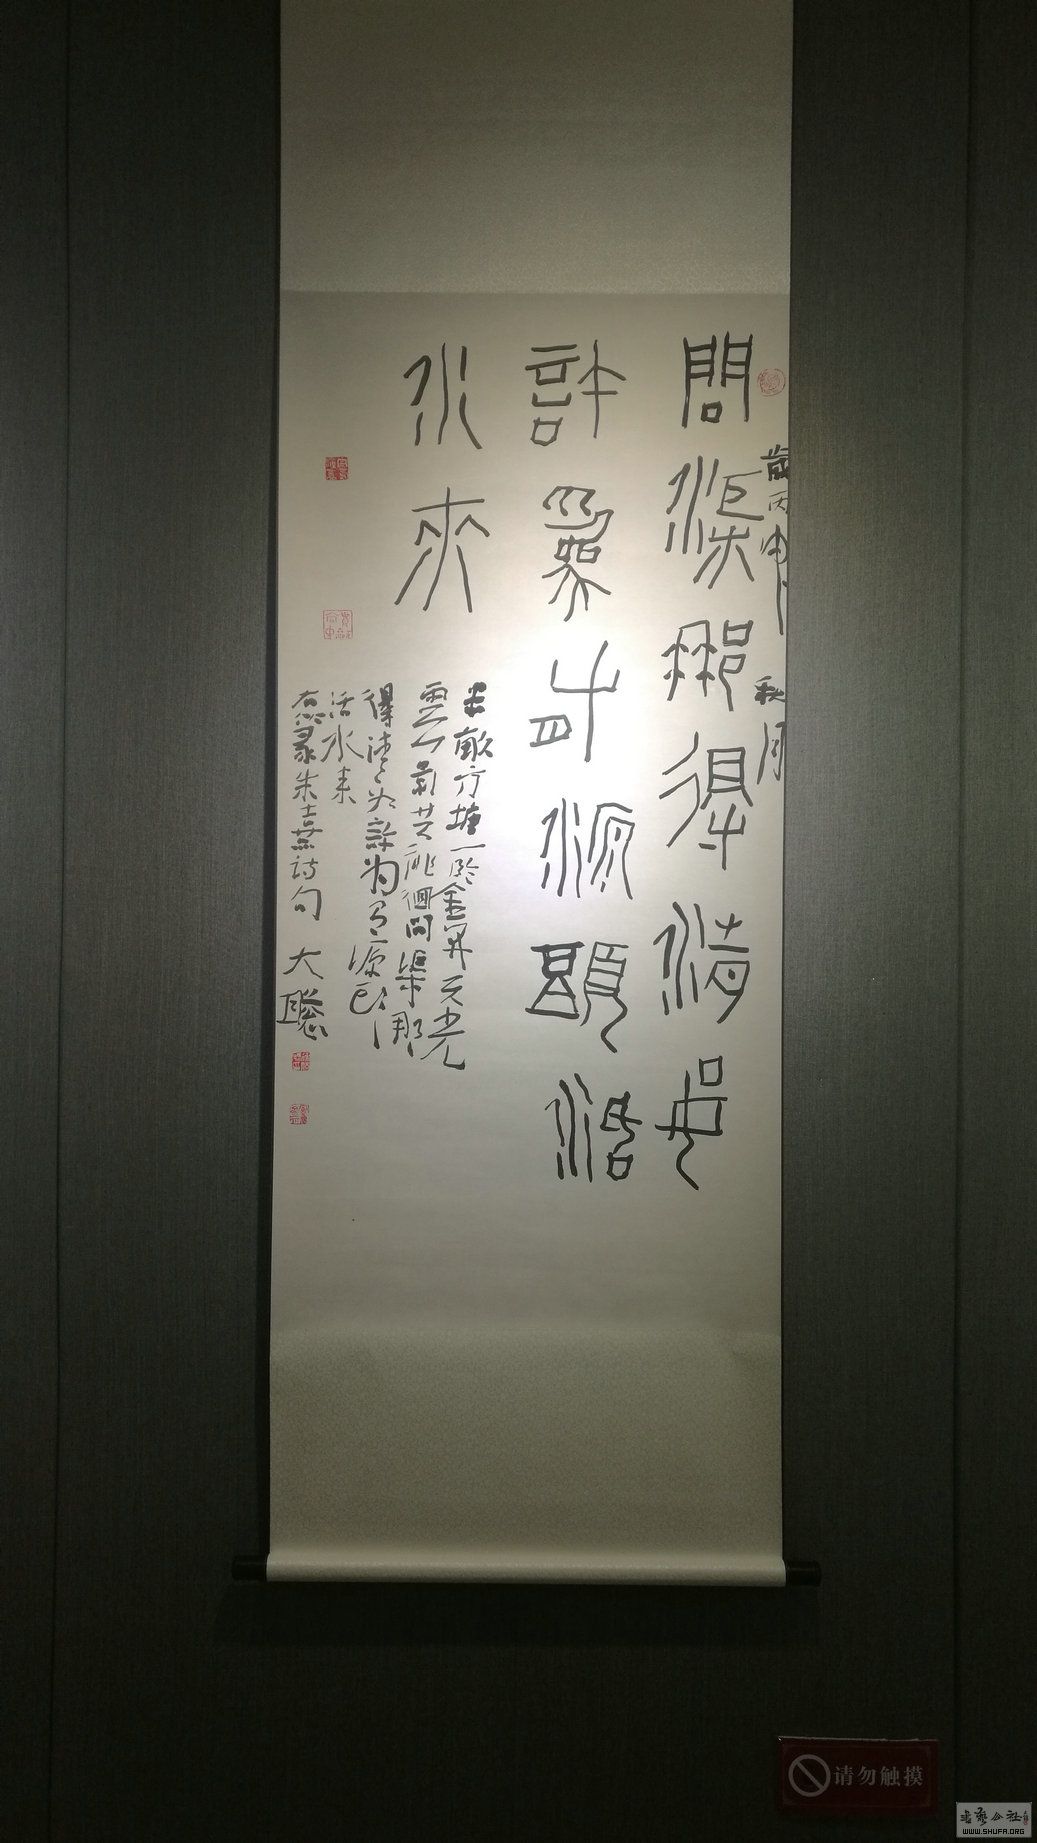 歲丙申秋月
問渠那得清如
許為有源頭活
水來
半畝方塘一鑑開天光
雲影共徘徊問渠那
得清如許为有源頭
活水来
右篆朱熹詩句 大聰
请勿触摸
WWW.SHUFA.ORG